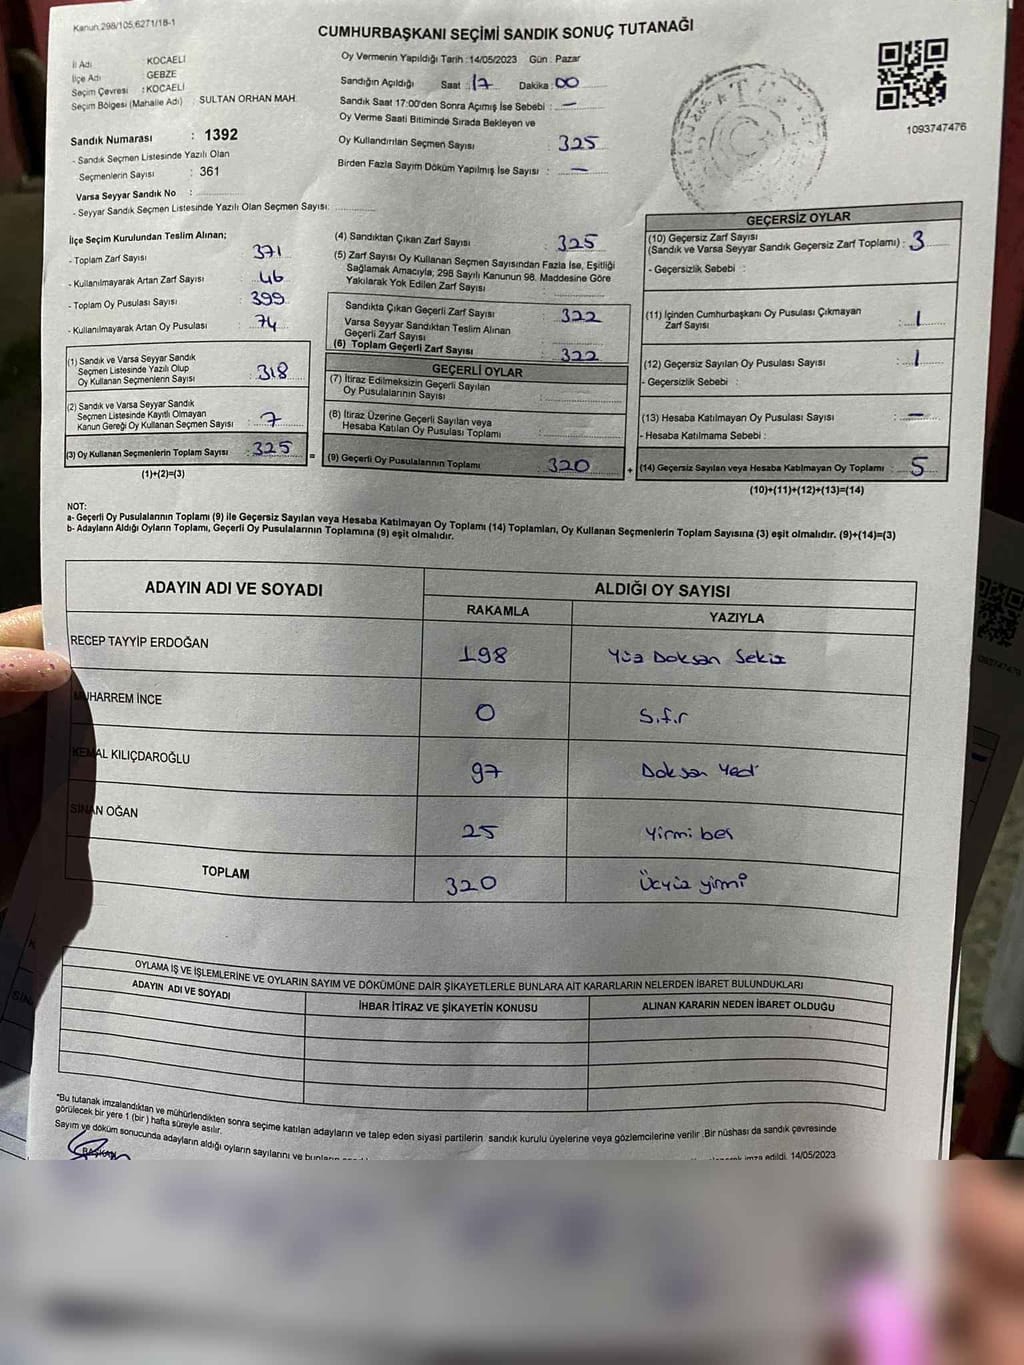 Kanun,298/105,6271/18-1
CUMHURBAŞKANI SEÇİMİ SANDIK SONUÇ TUTANAĞI
İl Adı : KOCAELİ
İlçe Adı : GEBZE
Seçim Çevresi : KOCAELİ
Seçim Bölgesi (Mahalle Adı) : SULTAN ORHAN MAH.
Sandık Numarası : 1392
- Sandık Seçmen Listesinde Yazılı Olan
Seçmenlerin Sayısı : 361
Varsa Seyyar Sandık No :
- Seyyar Sandık Seçmen Listesinde Yazılı Olan Seçmen Sayısı:
Oy Vermenin Yapıldığı Tarih :14/05/2023 Gün : Pazar
Sandığın Açıldığı Saat : 17 Dakika : 00
Sandık Saat 17:00'den Sonra Açımış İse Sebebi : —
Oy Verme Saati Bitiminde Sırada Bekleyen ve
Oy Kullandırılan Seçmen Sayısı : 325
Birden Fazla Sayım Döküm Yapılmış İse Sayısı : —
1093747476
İlçe Seçim Kurulundan Teslim Alınan;
- Toplam Zarf Sayısı : 371
- Kullanılmayarak Artan Zarf Sayısı : 46
- Toplam Oy Pusulası Sayısı : 399
- Kullanılmayarak Artan Oy Pusulası : 74
(1) Sandık ve Varsa Seyyar Sandık
Seçmen Listesinde Yazılı Olup
Oy Kullanan Seçmenlerin Sayısı : 318
(2) Sandık ve Varsa Seyyar Sandık
Seçmen Listesinde Kayıtlı Olmayan
Kanun Gereği Oy Kullanan Seçmen Sayısı : 7
(3) Oy Kullanan Seçmenlerin Toplam Sayısı : 325
(1)+(2)=(3)
(4) Sandıktan Çıkan Zarf Sayısı : 325
(5) Zarf Sayısı Oy Kullanan Seçmen Sayısından Fazla İse, Eşitliği
Sağlamak Amacıyla; 298 Sayılı Kanunun 98. Maddesine Göre
Yakılarak Yok Edilen Zarf Sayısı :
Sandıkta Çıkan Geçerli Zarf Sayısı : 322
Varsa Seyyar Sandıktan Teslim Alınan
Geçerli Zarf Sayısı :
(6) Toplam Geçerli Zarf Sayısı : 322
GEÇERLİ OYLAR
(7) İtiraz Edilmeksizin Geçerli Sayılan
Oy Pusulalarının Sayısı :
(8) İtiraz Üzerine Geçerli Sayılan veya
Hesaba Katılan Oy Pusulası Toplamı :
= (9) Geçerli Oy Pusulalarının Toplamı : 320
GEÇERSİZ OYLAR
(10) Geçersiz Zarf Sayısı
(Sandık ve Varsa Seyyar Sandık Geçersiz Zarf Toplamı) : 3
- Geçersizlik Sebebi :
(11) İçinden Cumhurbaşkanı Oy Pusulası Çıkmayan
Zarf Sayısı : 1
(12) Geçersiz Sayılan Oy Pusulası Sayısı : 1
- Geçersizlik Sebebi :
(13) Hesaba Katılmayan Oy Pusulası Sayısı : —
- Hesaba Katılmama Sebebi :
+ (14) Geçersiz Sayılan veya Hesaba Katılmayan Oy Toplamı : 5
(10)+(11)+(12)+(13)=(14)
NOT:
a- Geçerli Oy Pusulalarının Toplamı (9) ile Geçersiz Sayılan veya Hesaba Katılmayan Oy Toplamı (14) Toplamları, Oy Kullanan Seçmenlerin Toplam Sayısına (3) eşit olmalıdır. (9)+(14)=(3)
b- Adayların Aldığı Oyların Toplamı, Geçerli Oy Pusulalarının Toplamına (9) eşit olmalıdır.
ADAYIN ADI VE SOYADI
ALDIĞI OY SAYISI
RAKAMLA YAZIYLA
RECEP TAYYİP ERDOĞAN 198 Yüz Doksan Sekiz
MUHARREM İNCE 0 Sıfır
KEMAL KILIÇDAROĞLU 97 Doksan Yedi
SİNAN OĞAN 25 Yirmi beş
TOPLAM 320 Üçyüz yirmi
OYLAMA İŞ VE İŞLEMLERİNE VE OYLARIN SAYIM VE DÖKÜMÜNE DAİR ŞİKAYETLERLE BUNLARA AİT KARARLARIN NELERDEN İBARET BULUNDUKLARI
ADAYIN ADI VE SOYADI İHBAR İTİRAZ VE ŞİKAYETİN KONUSU ALINAN KARARIN NEDEN İBARET OLDUĞU
*Bu tutanak imzalandıktan ve mühürlendikten sonra seçime katılan adayların ve talep eden siyasi partilerin sandık kurulu üyelerine veya gözlemcilerine verilir .Bir nüshası da sandık çevresinde
görülecek bir yere 1 (bir ) hafta süreyle asılır.
Sayım ve döküm sonucunda adayların aldığı oyların sayılarını ve bunların
imza edildi. 14/05/2023
BAŞKAN